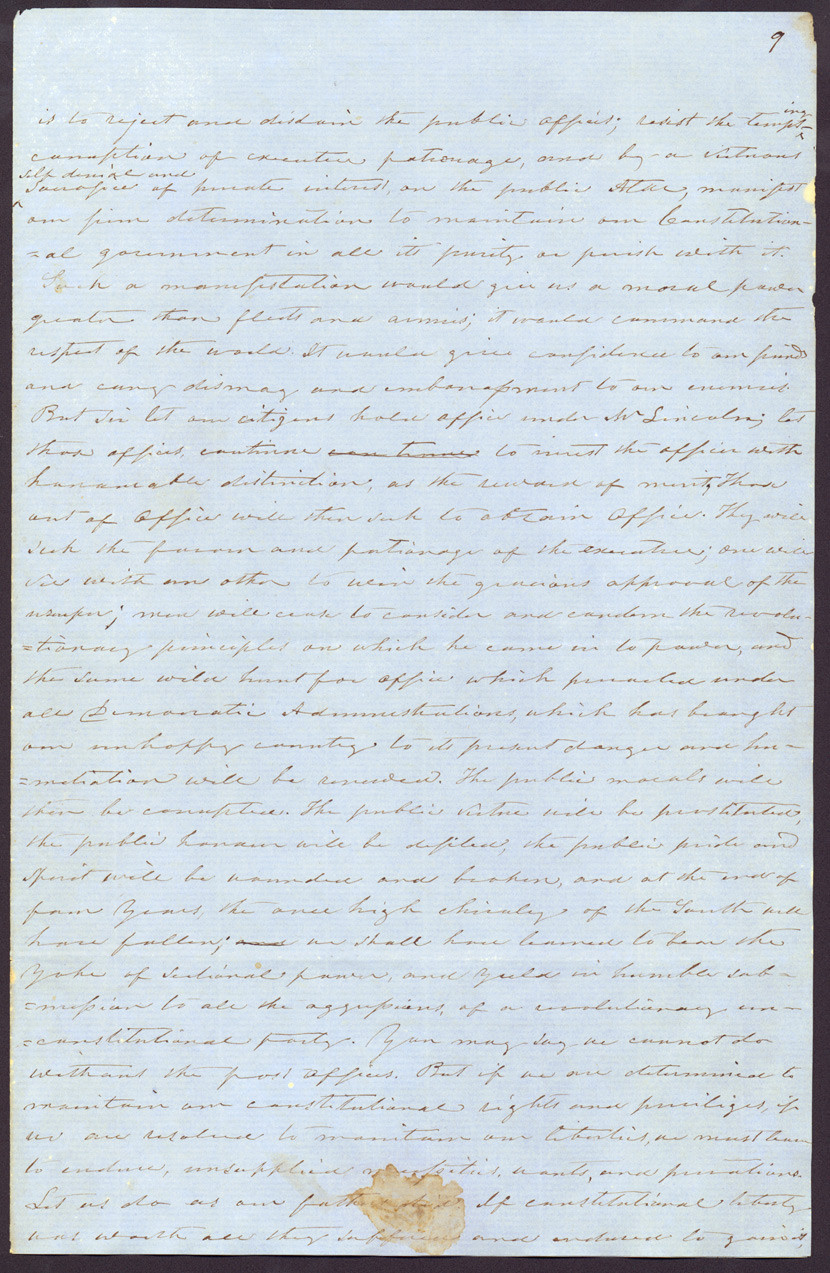 9
is to reject and disdain the public offices; resist the tempting
corruption of executive patronage, and by a virtuous
self denial and
sacrifice of private interest, on the public Altar, manifest
our firm determination to maintain our Constitution-
=al government in all its purity or perish with it.
Such a manifestation would give us a moral power
greater than fleets and armies; it would command the
respect of the world. It would give confidence to our friends
and carry dismay and embarrassment to our enemies.
But Sir let our citizens hold office under Mr Lincoln; let
those offices, continue con tinue to invest the officer with
honourable distinction, as the reward of merit, Those
out of Office will then seek to obtain Office. They will
seek the favour and patronage of the executive; one will
vie with an other to win the gracious approval of the
usurper; men will cease to consider and condemn the revolu-
=tionary principles on which he came in to power, and
the same wild hunt for office which prevailed under
all Democratic Administrations, which has brought
our unhappy country to its present danger and hu-
=miliation will be renewed. The public morals will
then be corrupted. The public virtue will be prostituted,
the public honour will be defiled, the public pride and
spirit will be wounded and broken, and at the end of
four Years, the once high chivalry of the South will
have fallen; and we shall have learned to bear the
Yoke of sectional power, and yeild in humble sub-
=mission to all the aggressions, of a revolutionary un-
=constitutional party. You may say we cannot do
without the post offices. But if we are determined to
maintain our constitutional rights and priviliges, if
we are resolved to maintain our liberties, we must learn
to endure, unsupplied necessities, wants, and privations.
Let us do as our fathers did. If constitutional liberty
was worth all they suffered and endured to gain it,